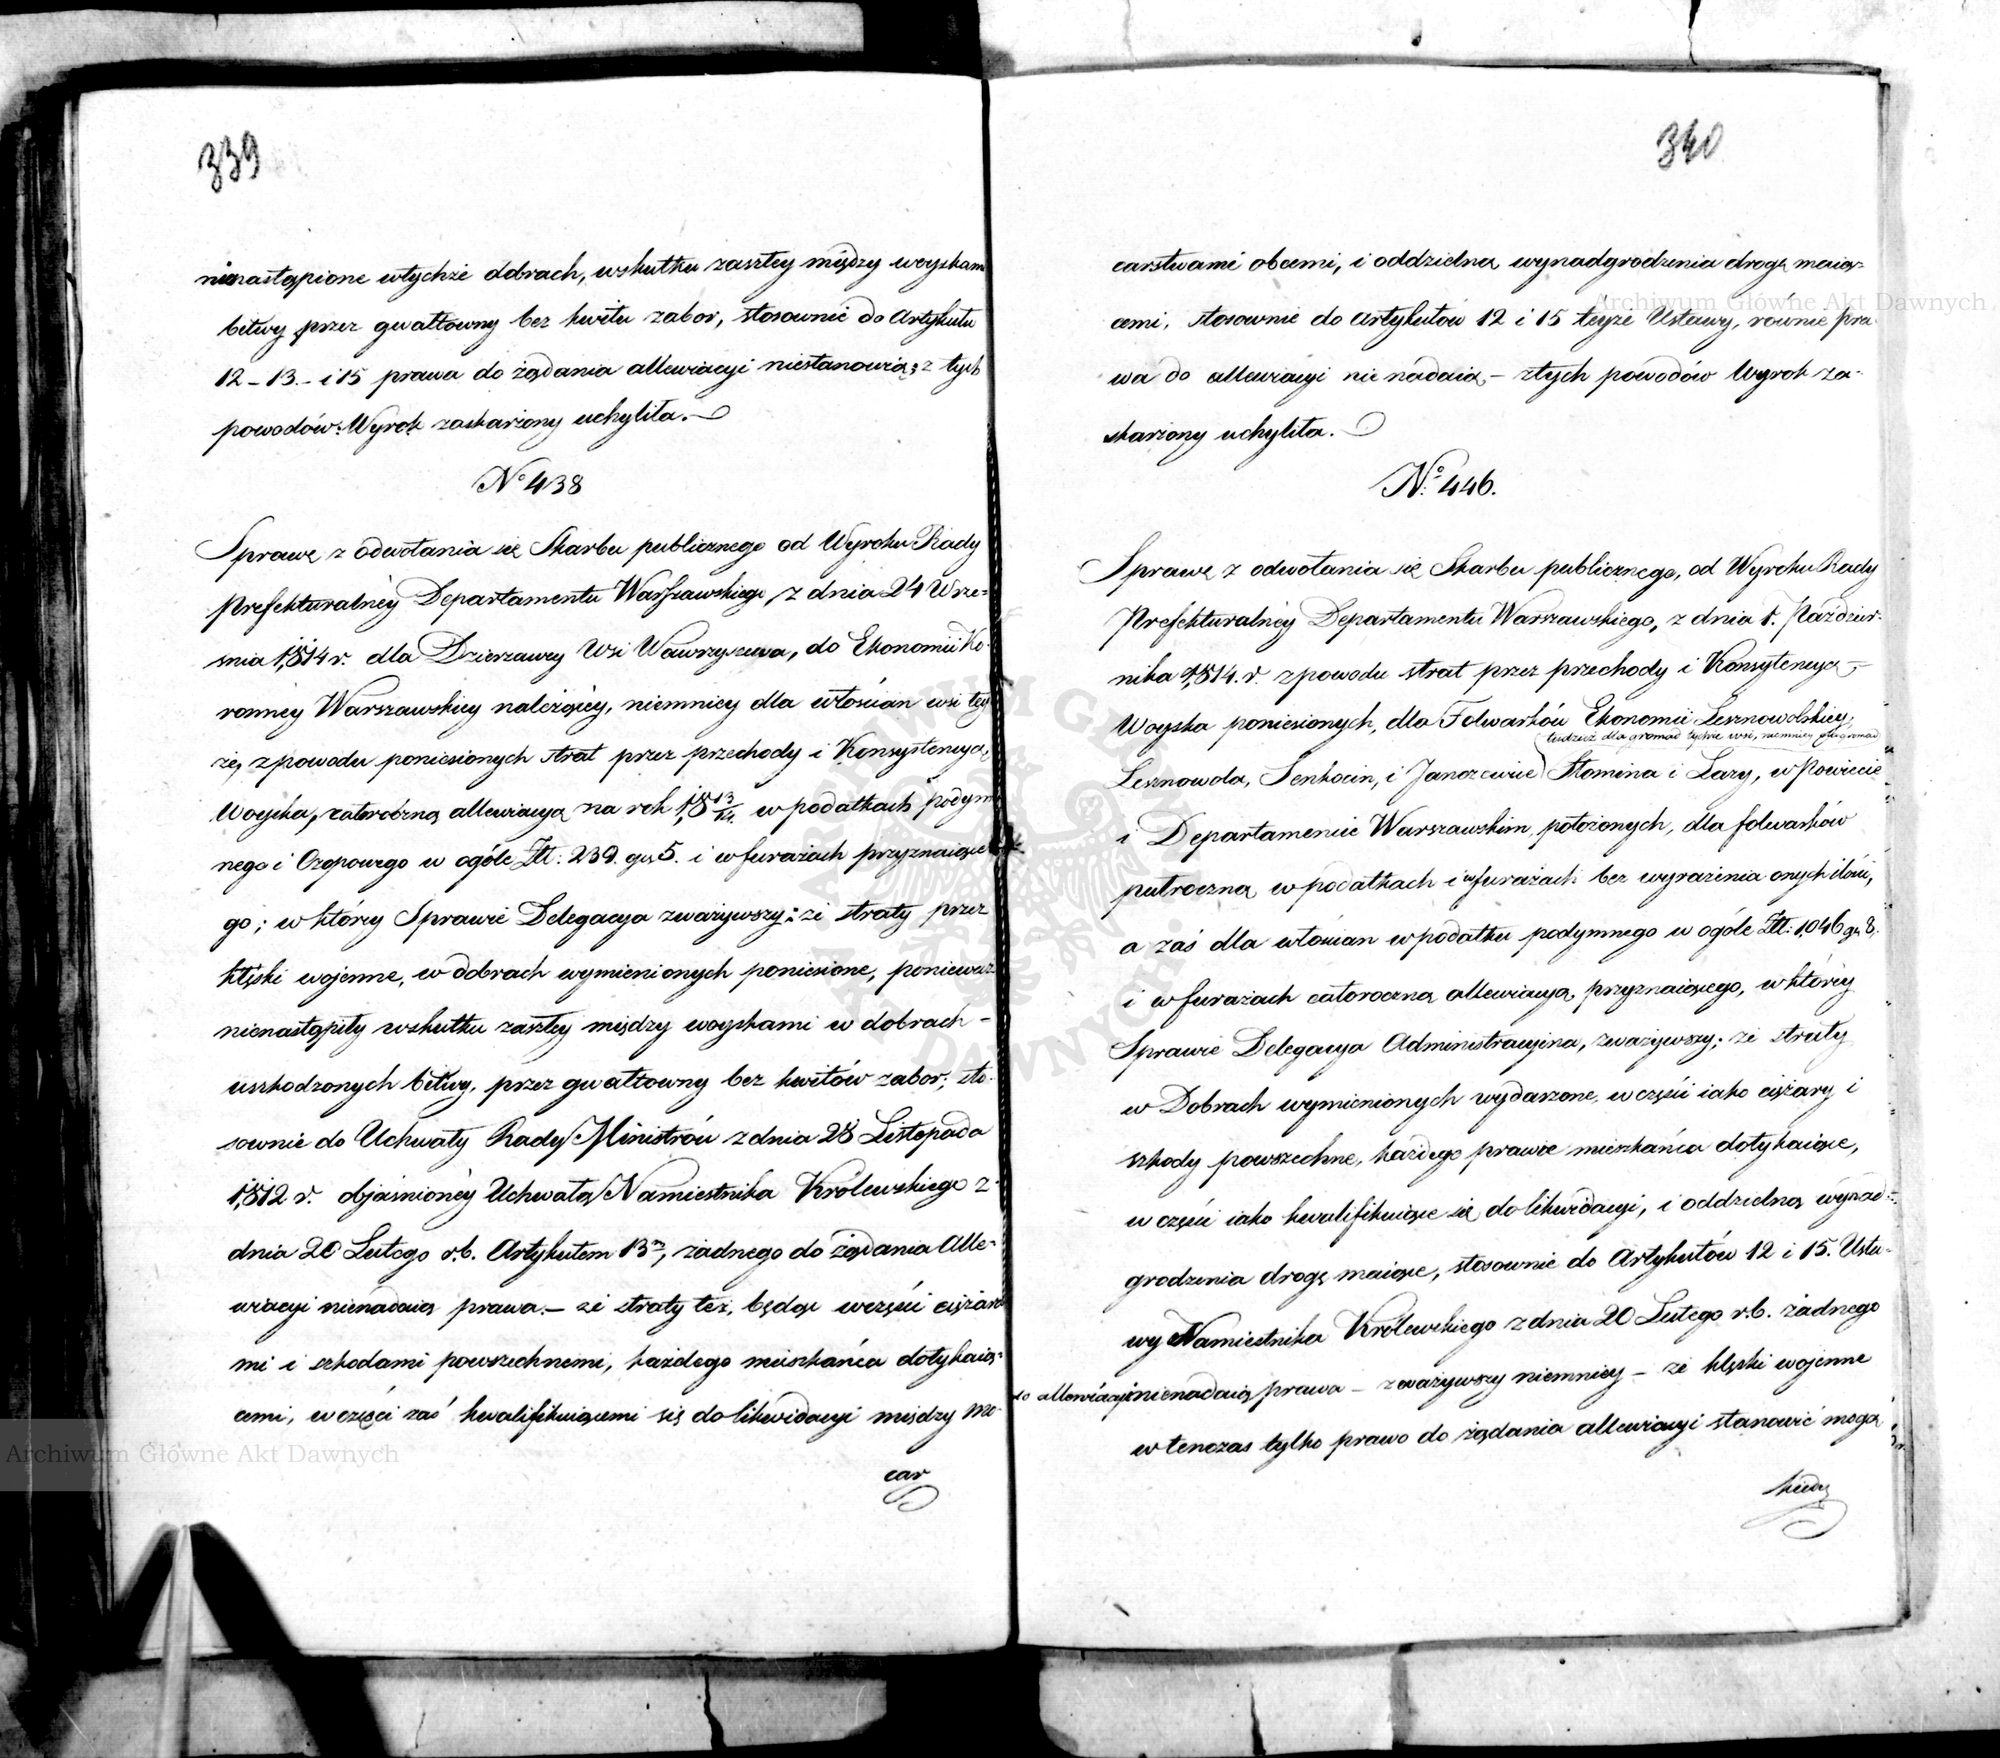 339
nienastąpione wtychże dobrach, wskutku zaszłey między woyskam
bitwy przez gwałtowny bez kwitu zabor, stosownie do Artykułu
12 – 13. – i 15 prawa do żądania allewiacyi niestanowią; z tych
powodów: Wyrok zaskarżony uchyliła.
No 438
Sprawę z odwołania się Skarbu publicznego od Wyroku Rady
Prefekturalnéy Departamentu Warszawskiego z dnia 24 Wrze=
śnia 1814 r. dla Dzierżawcy Wsi Wawrzyszewa, do Ekonomii Ko-
ronney Warszawskiey należącéy, niemniey dla włościan wsi tey
że, z powodu poniesionych strat przez przechody i Konsystencyą
Woyska, całoroczną allewiacyą na rok 1813/14. w podatkach podym
nego i Czopowego w ogóle Złl: 239. gr. 5. i w furażach przyznaiące
go; w którey Sprawie Delegacya zważywszy: że straty przez
klęski wojenne, w dobrach wymienionych poniesione, ponieważ
nienastąpiły wskutku zaszłey między woyskami w dobrach –
uszkodzonych bitwy, przez gwałtowny bez kwitów zabor; sto-
sownie do Uchwały Rady Ministrów z dnia 28 Listopada
1812 r. objaśnionéy Uchwałą Namiestnika Królewskiego z
dnia 20 Lutego r.b. Artykułem 13m, żadnego do żądania Alle=
wiacyi nienadaią prawa. – że straty też, będąc wczęści ciężara
mi i szkodami powszechnemi, każdego mieszkańca dotykaią=
cemi, w części zaś kwalifikuiącemi się do likwidacyi między Mo-
car
340
carstwami obcemi, i oddzielną wynadgrodzenia drogę maią=
cemi, stosownie do Artykułów 12 i 15 teyże Ustawy, równie pra-
wa do allewiacyi nie nadaią, – z tych powodów Wyrok za-
skarżony uchyliła.
No: 446.
Sprawę z odwołania się Skarbu publicznego, od Wyroku Rady
Prefekturalnéy Departamentu Warszawskiego, z dnia 1. Paździer-
nika 1814. r. z powodu strat przez przechody i Konsystencyą –
Woyska poniesionych, dla Folwarków Ekonomii Lesznowolskiey,
tudzież dla gromad tychże wsi, niemniey dla gromad
Lesznowola, Senkocin, i Janczewice Słomina i Łazy, w Powiecie
i Departamencie Warszawskim położonych, dla folwarków
pułroczną w podatkach i w furażach bez wyrażenia onych ilości,
a zaś dla włościan w podatku podymnego w ogóle Złl: 1,046 gr. 8.
i w furażach całoroczną allewiacyą przyznaiącego, w którey
Sprawie Delegacya Administracyina, zważywszy; że straty
w Dobrach wymienionych wydarzone, w części iako ciężary i
szkody powszechne, każdego prawie mieszkańca dotykaiące,
w części iako kwalifikuiące się do likwidacyi, i oddzielną wynad=
grodzenia drogę maiące, stosownie do Artykułów 12 i 15. Usta-
wy Namiestnika Królewskiego z dnia 20 Lutego r.b. żadnego
do allewiacyi nienadaią prawa – zważywszy niemniey – że klęski wojenne
w tenczas tylko prawo do żądania allewiacyi stanowić mogą
kiedy
Archiwum Główne Akt Dawnych
Archiwum Główne Akt Dawnych